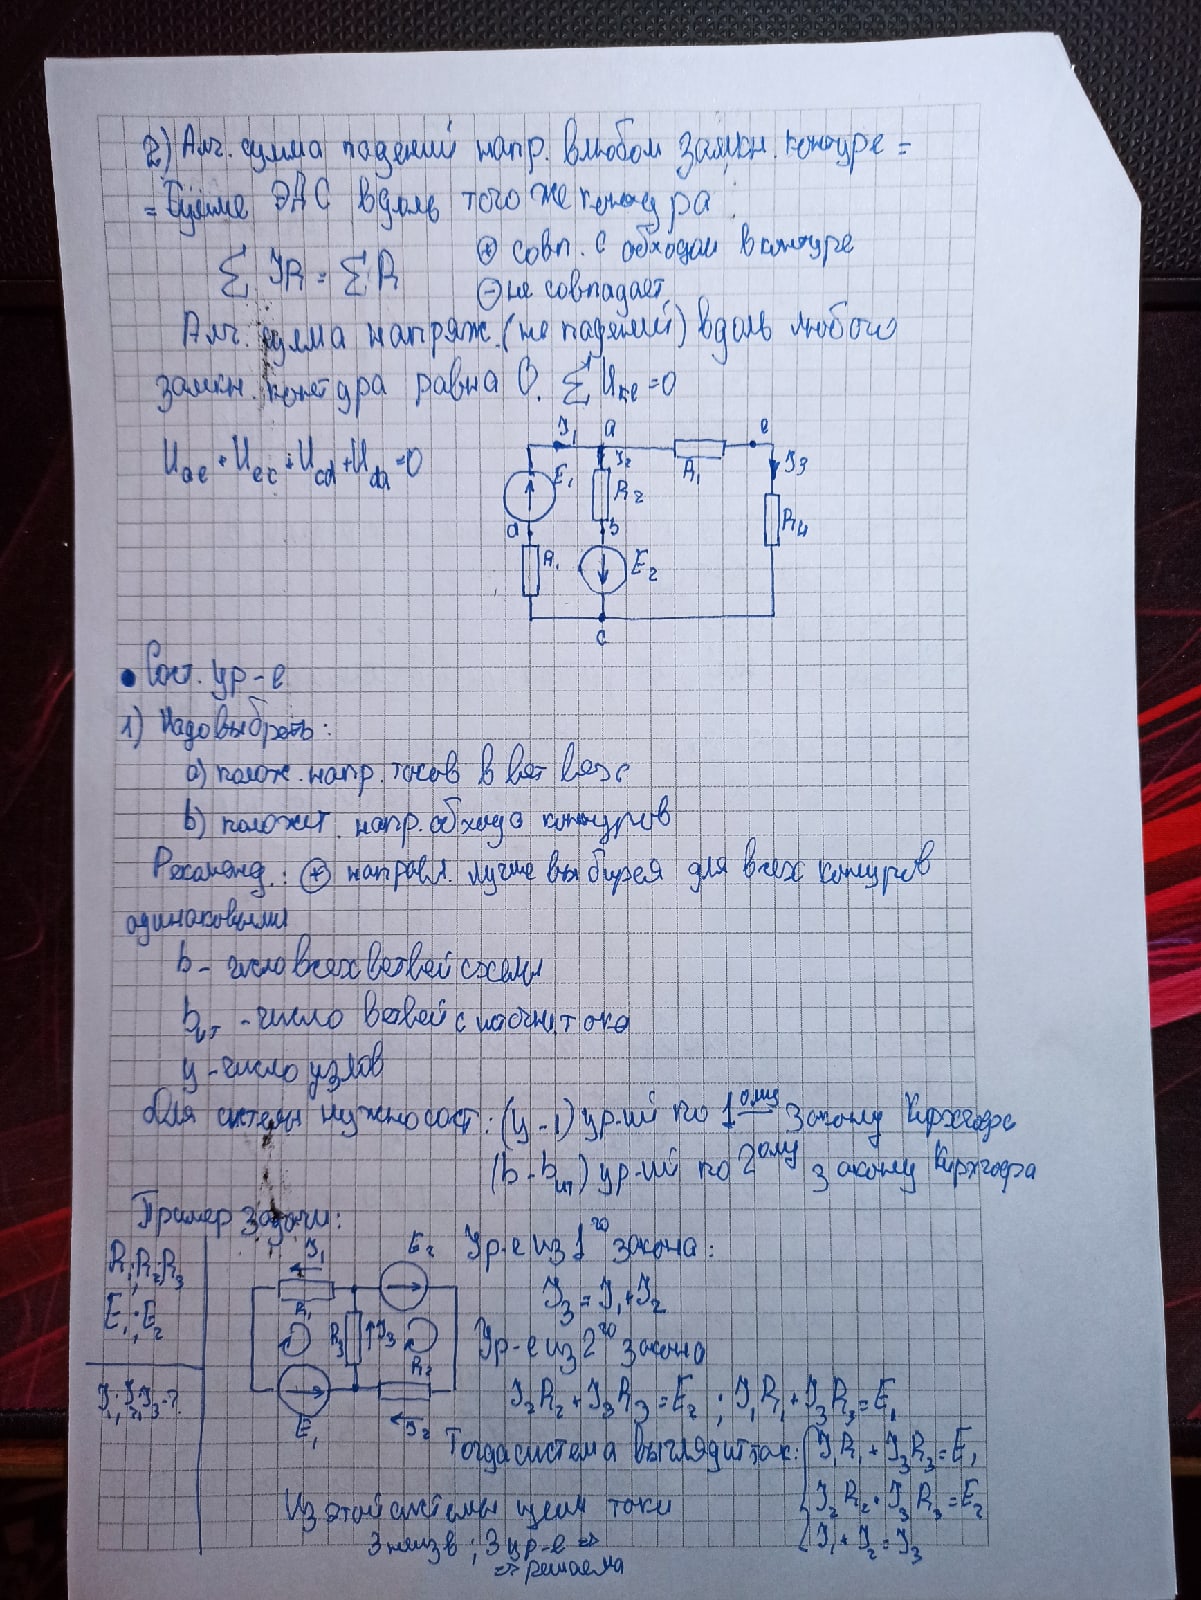 2) Алг. сумма падений напр. в любом замкн. контуре =
= сумме ЭДС вдоль того же контура
⊕ совп. с обходом в контуре
Σ IR = ΣR
⊖ не совпадает
Алг. сумма напряж. (не падений) вдоль любого
замкн. контура равна 0. Σ Uке = 0
Uае + Uес + Ucd + Uda = 0
I₁ a e
E₁ I₂ R₁ I₃
R₂ R₄
d b
R₁ E₂
c
• Сост. ур-е
1) Надо выбрать:
а) полож. напр. токов в
b) положит. напр. обхода контуров
Рекоменд.: ⊕ направл. лучше выбирая для всех контуров
одинаковыми
b - число всех ветвей схемы
bит - число ветвей с источн. тока
у - число узлов
Для системы нужно сост: (у - 1) ур-ий по 1ому закону Кирхгофа
(b - bит) ур-ий по 2ому закону Кирхгофа
Пример задачи:
R₁; R₂; R₃
E₁; E₂
I₁; I₂; I₃ - ?
I₁ E₂
R₁
R₃ I₃
R₂
E₁ I₂
Ур-е из 1го закона:
I₃ = I₁ + I₂
Ур-е из 2го закона
I₂R₂ + I₃R₃ = E₂ ; I₁R₁ + I₃R₃ = E₁
Тогда система выглядит так: { I₁R₁ + I₃R₃ = E₁
I₂R₂ + I₃R₃ = E₂
I₁ + I₂ = I₃
Из этой системы ищем токи
3 неизв ; 3 ур-е ⇒
⇒ решаема